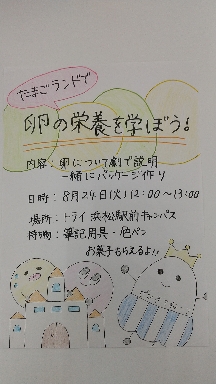 たまごランドで
卵の栄養を学ぼう!
内容:卵について劇で説明
一緒にパッケージ作り
日時:8月24日(火)12:00〜13:00
場所:トライ浜松駅前キャンパス
持物:筆記用具・色ペン
お菓子もらえるよ!!